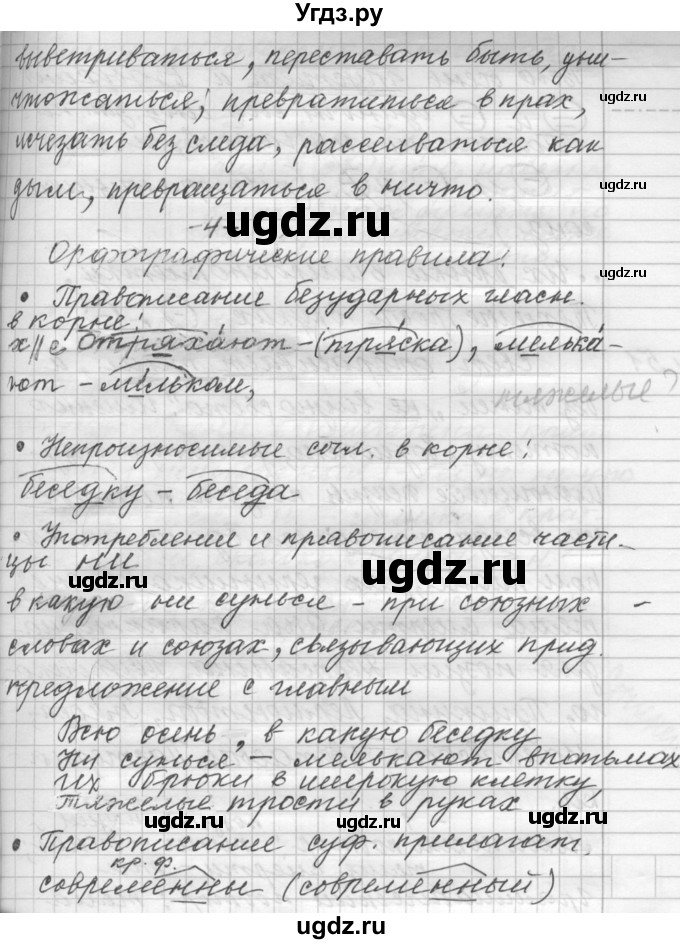 Угдз.ру
выветриваться, переставать быть, уни-
чтожаться; превратиться в прах,
исчезать без следа, рассеиваться как
дым, превращаться в ничто.
-4-
Орфографические правила:
• Правописание безударных гласн.
в корне:
х//с отряхают - (тряска), мелька-
ют - мельком,
тяжелые
• Непроизносимые согл. в корне:
беседку - беседа
• Употребление и правописание части-
цы ни
в какую ни сунься - при союзных -
словах и союзах, связывающих прид.
предложение с главным
Всю осень, в какую беседку
Ни сунься - мелькают впотьмах
Их брюки в широкую клетку,
Тяжелые трости в руках
• Правописание суф. прилагат.
кр. ф.
современны (современный)
ugdz.ru
ugdz.ru
ugdz.ru
ugdz.ru
ugdz.ru
ugdz.ru
ugdz.ru
ugdz.ru
ugdz.ru
ugdz.ru
ugdz.ru
ugdz.ru